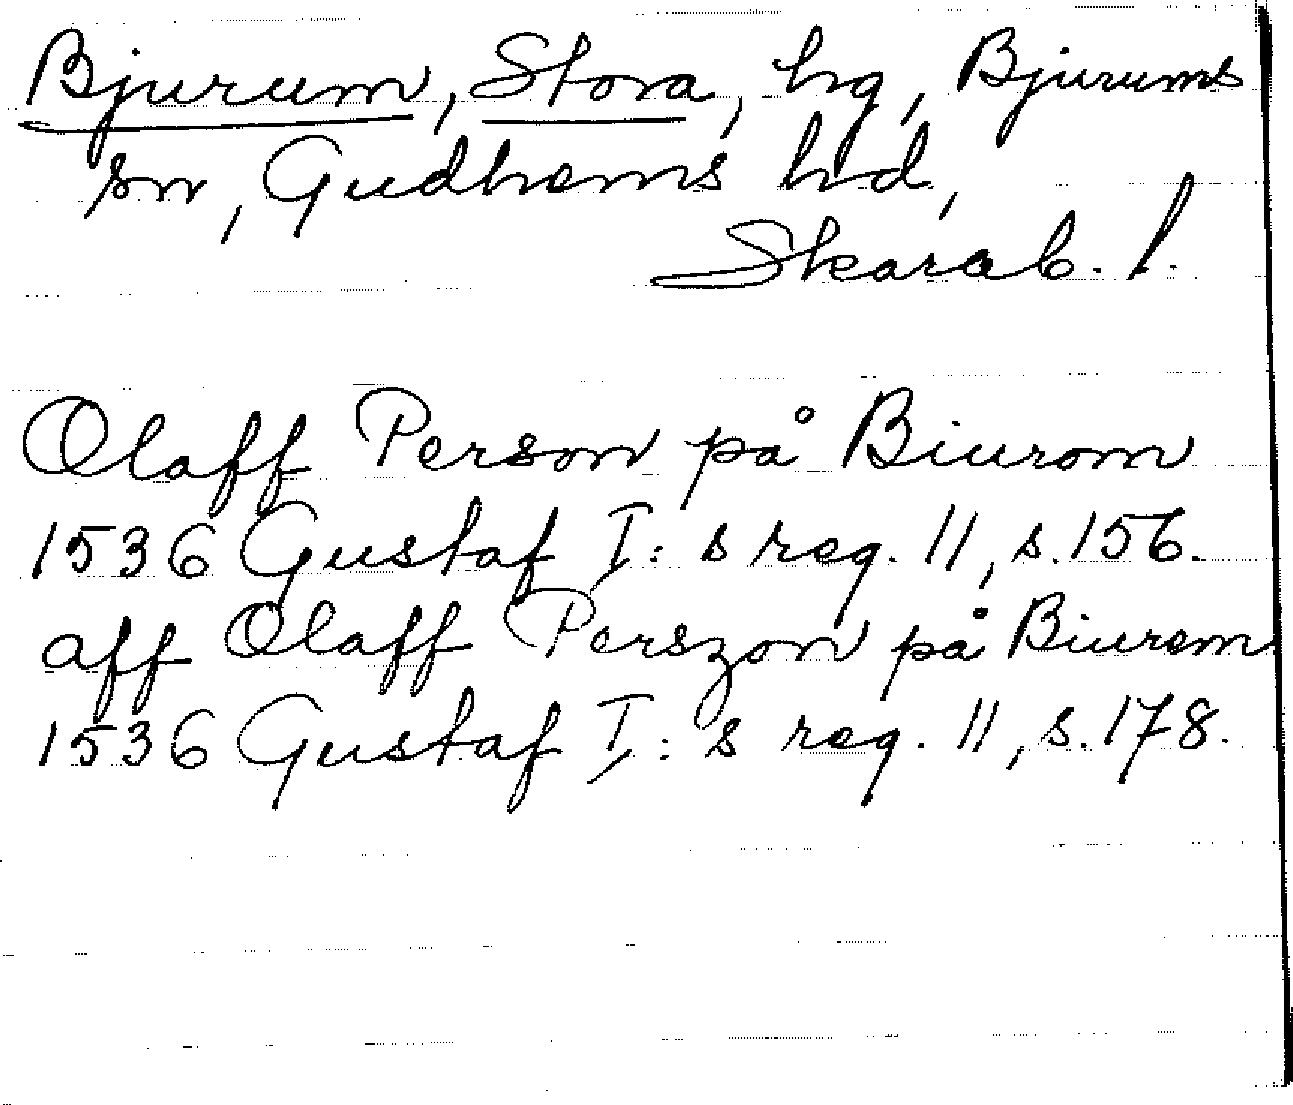 Bjurum, Stora, hg, Bjurums
sn, Gudhems hd,
Skarab. l.
Olaff Person på Biurom
1536 Gustaf I: s reg. 11, s. 156.
aff Olaff Perszon på Biurem
1536 Gustaf I: s reg. 11, s. 178.